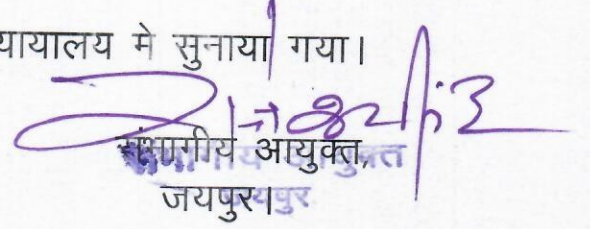 यायालय मे सुनाया गया।
संभागीय आयुक्त,
जयपुर।